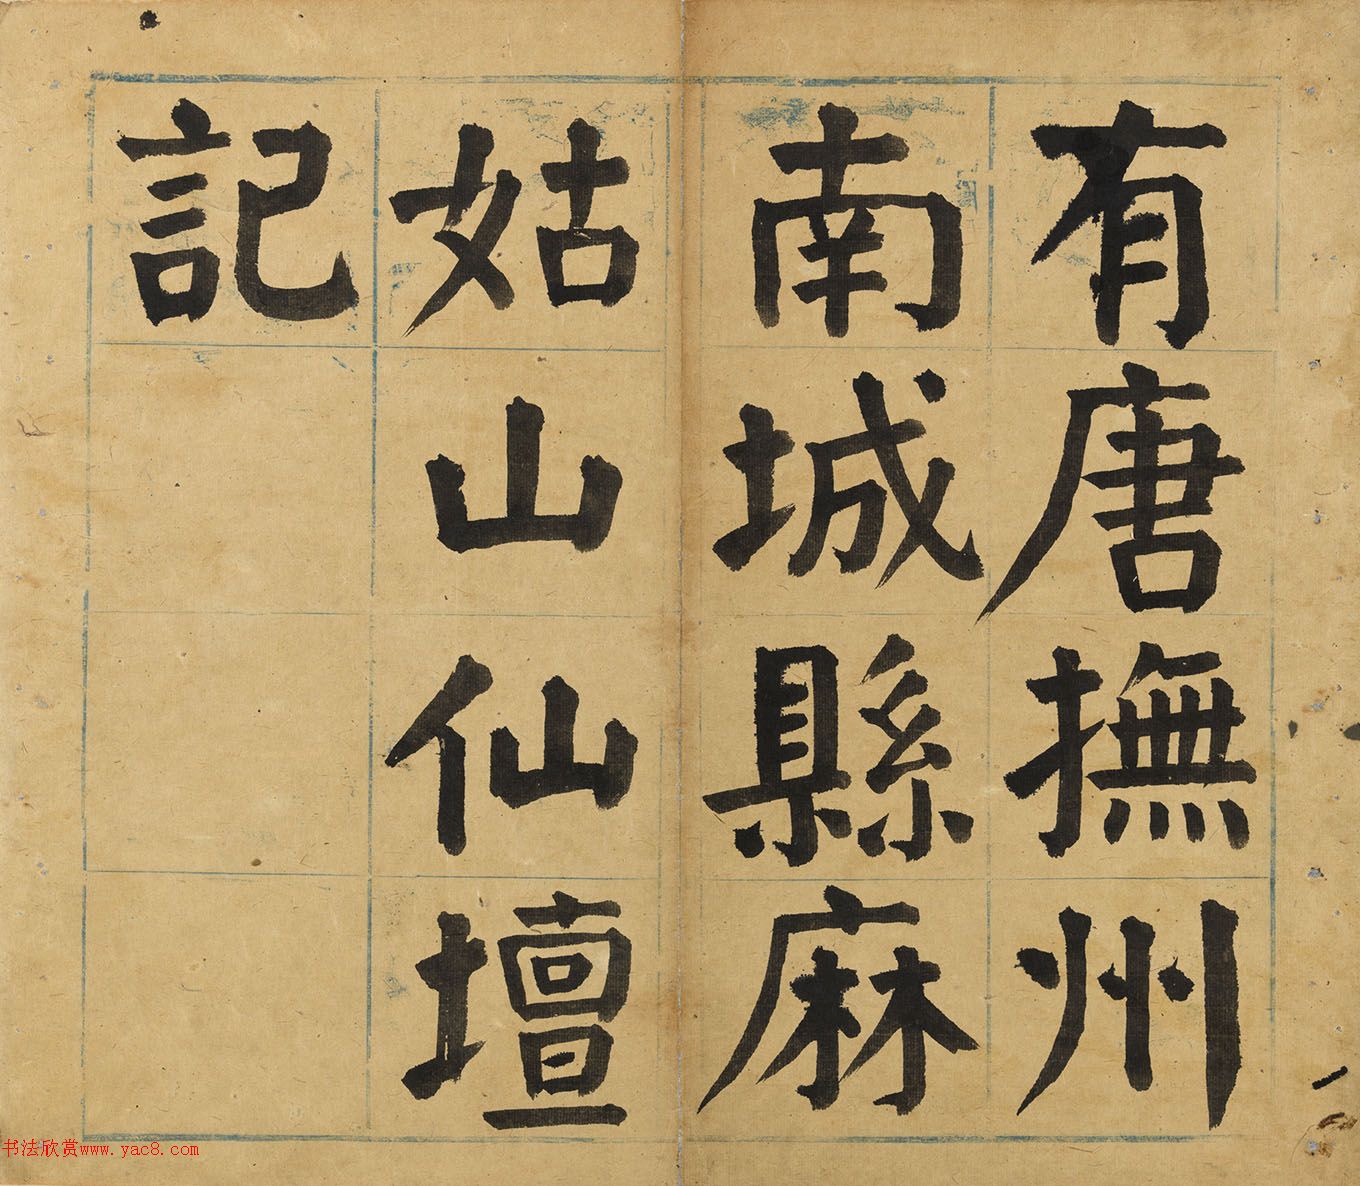 有唐撫州
南城縣麻
姑山仙壇
記
书法欣赏www.yac8.com